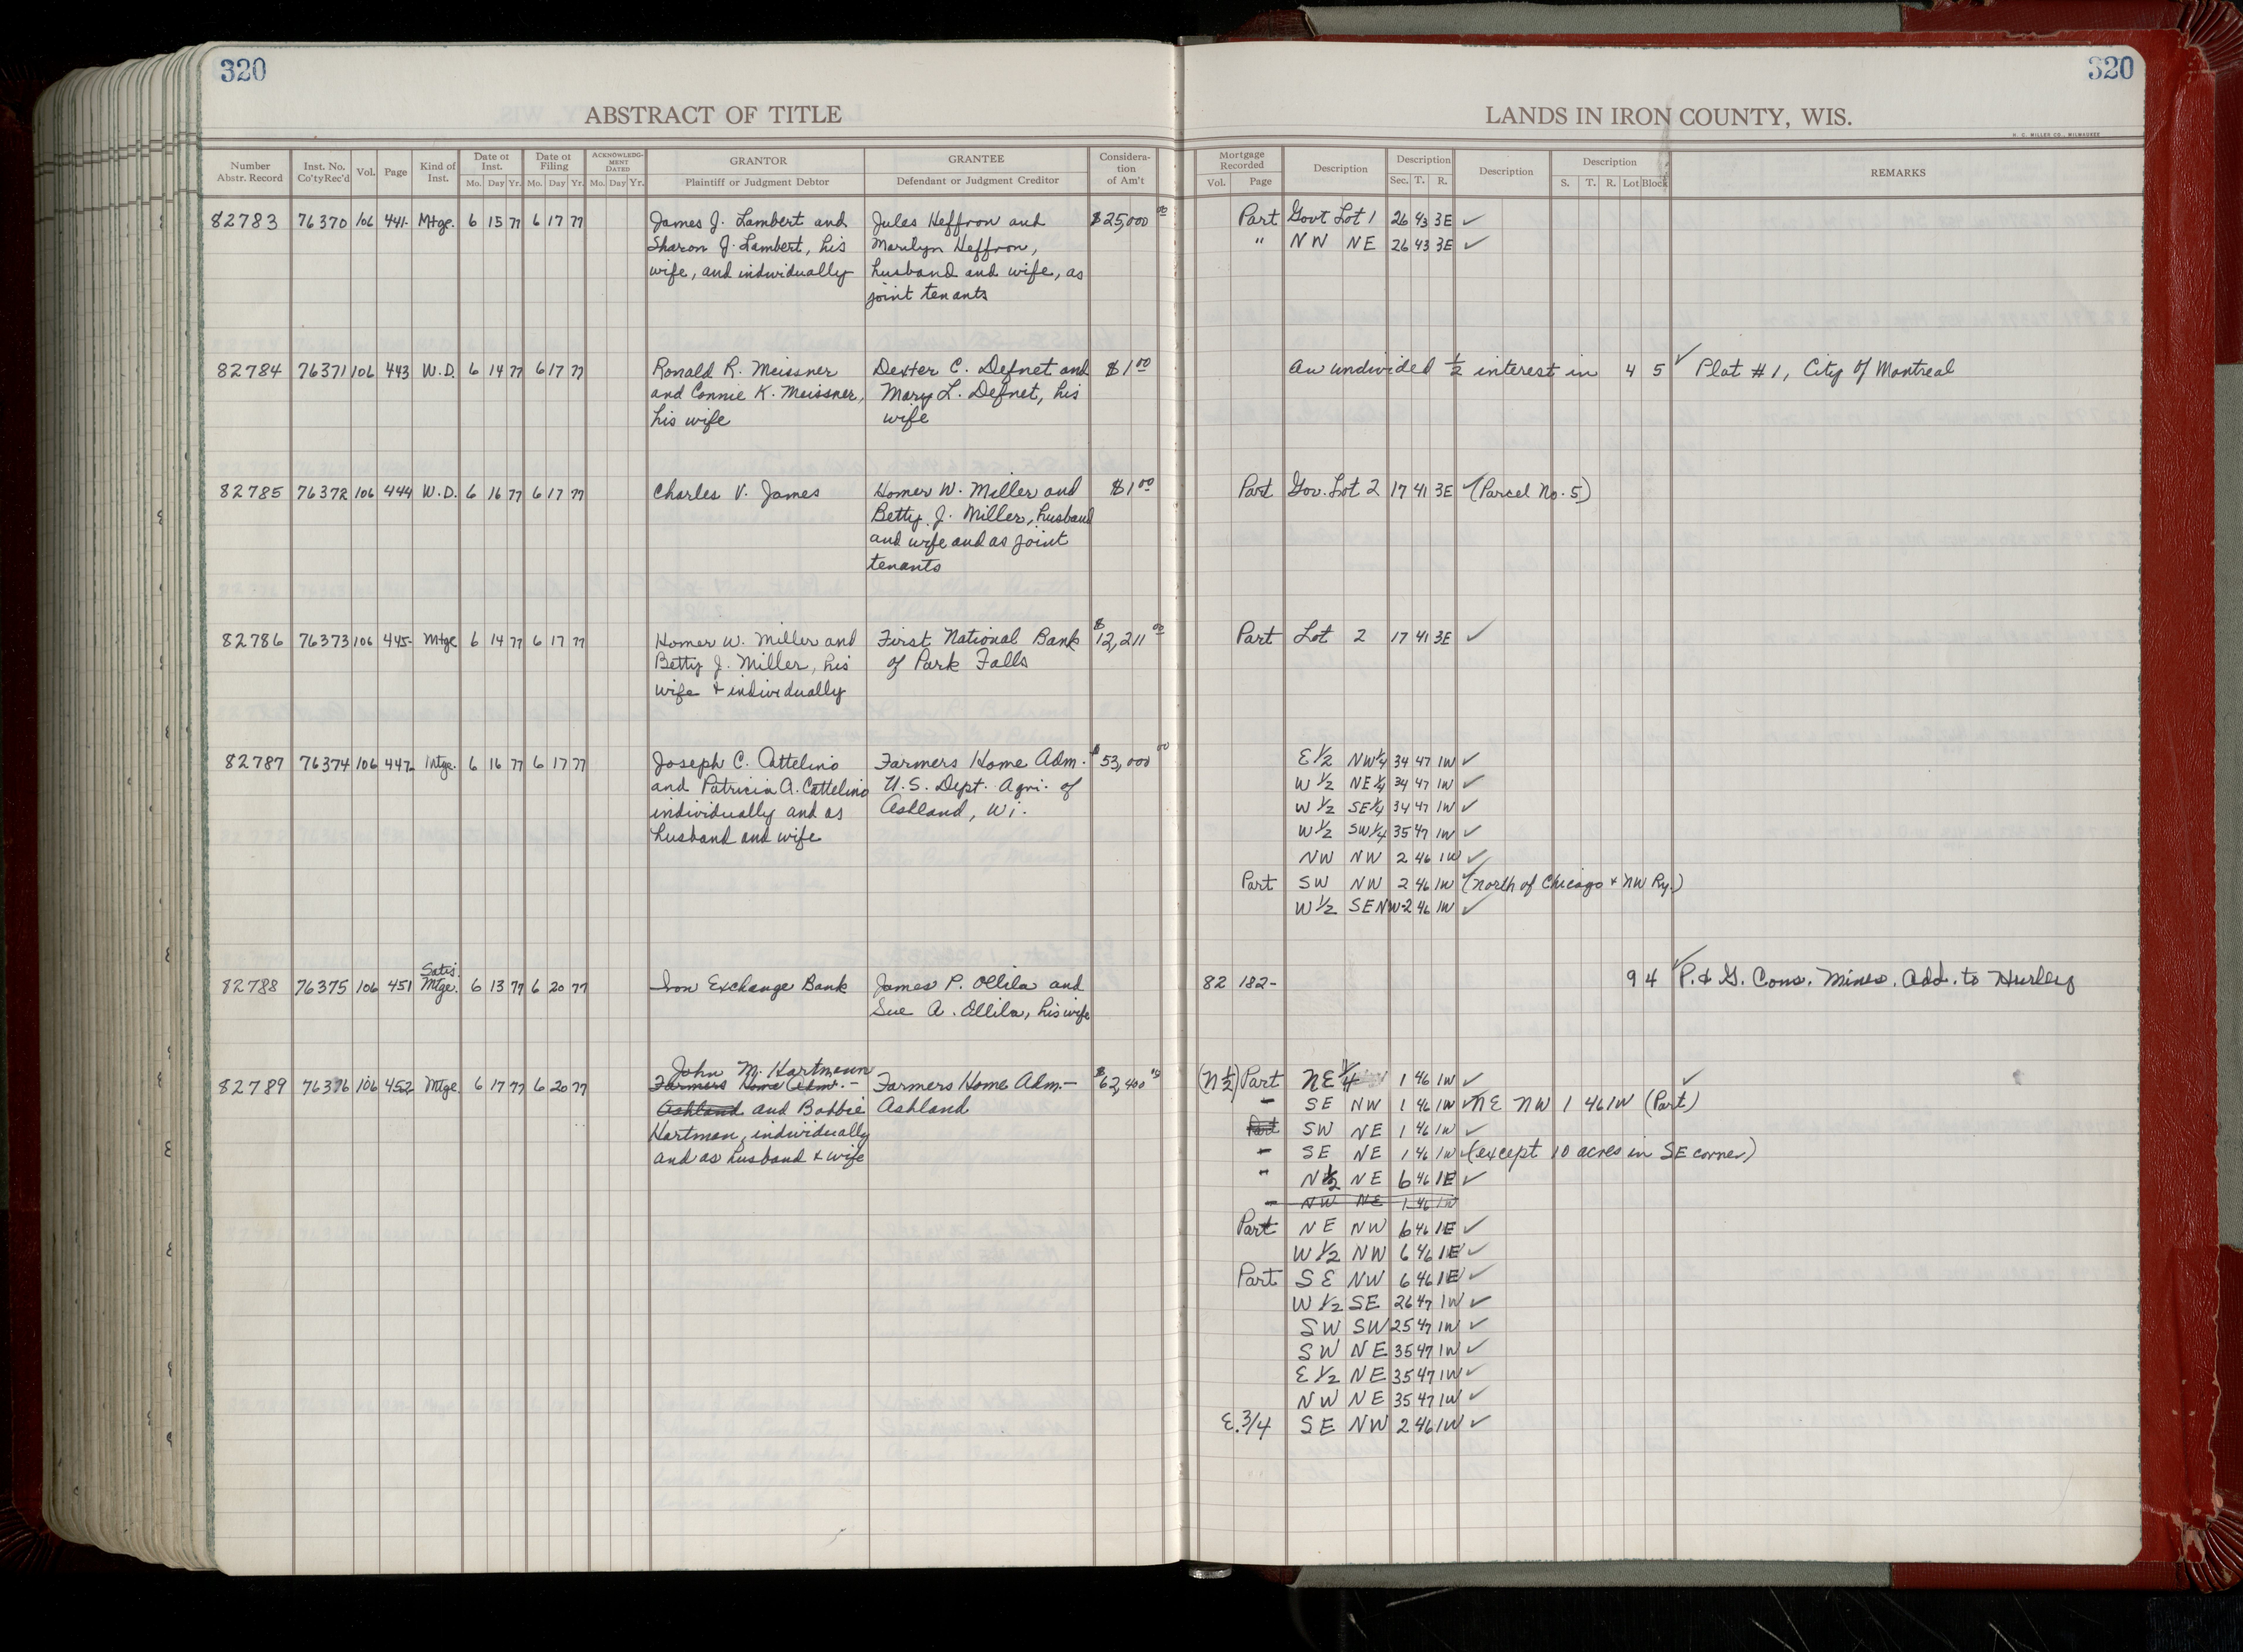 320
320
ABSTRACT OF TITLE
LANDS IN IRON COUNTY, WIS.
H. C. MILLER CO., MILWAUKEE
Number Abstr. Record Inst. No. Co'ty Rec'd Vol. Page Kind of Inst. Date of Inst. Mo. Day Yr. Date of Filing Mo. Day Yr. ACKNOWLEDGMENT DATED Mo. Day Yr. GRANTOR Plaintiff or Judgment Debtor GRANTEE Defendant or Judgment Creditor Consideration of Am't
Mortgage Recorded Vol. Page Description Description Sec. T. R. Description Description S. T. R. Lot Block REMARKS
82783 76370 106 441- Mtge. 6 15 77 6 17 77 James J. Lambert and Jules Heffron and $25,000 00 Part Govt Lot 1 26 43 3E ✓
Sharon J. Lambert, his Marilyn Heffron, " NW NE 26 43 3E ✓
wife, and individually husband and wife, as
joint tenants
82784 76371 106 443 W.D. 6 14 77 6 17 77 Ronald R. Meissner Dexter C. Defnet and $1 00 An undivided 1/2 interest in 4 5 ✓ Plat #1, City of Montreal
and Connie K. Meissner, Mary L. Defnet, his
his wife wife
82785 76372 106 444 W.D. 6 16 77 6 17 77 Charles V. James Homer W. Miller and $1 00 Part Gov. Lot 2 17 41 3E ✓ (Parcel No. 5)
Betty J. Miller, husband
and wife and as joint
tenants
82786 76373 106 445- Mtge 6 14 77 6 17 77 Homer W. Miller and First National Bank $12,211 00 Part Lot 2 17 41 3E ✓
Betty J. Miller, his of Park Falls
wife & individually
82787 76374 106 447- Mtge. 6 16 77 6 17 77 Joseph C. Cattelino Farmers Home Adm. $53,000 00 E 1/2 NW 1/4 34 47 1W ✓
and Patricia A. Cattelino U.S. Dept. Agri. of W 1/2 NE 1/4 34 47 1W ✓
individually and as Ashland, Wi. W 1/2 SE 1/4 34 47 1W ✓
husband and wife W 1/2 SW 1/4 35 47 1W ✓
NW NW 2 46 1W ✓
Part SW NW 2 46 1W ✓ (North of Chicago & NW Ry.)
W 1/2 SENW-2 46 1W ✓
82788 76375 106 451 Satis. Mtge. 6 13 77 6 20 77 Iron Exchange Bank James P. Ollila and 82 182- 9 4 ✓ P. & G. Cons. Mines. Add. to Hurley
Sue A. Ollila, his wife
John M. Hartmann
82789 76376 106 452 Mtge. 6 17 77 6 20 77 Farmers Home Adm.- Farmers Home Adm.- $62,400 00 (N 1/2) Part NE 1/4 1 46 1W ✓ ✓
Ashland and Bobbie Ashland - SE NW 1 46 1W ✓ NE NW 1 46 1W (Part)
Hartman, individually Part SW NE 1 46 1W ✓
and as husband & wife - SE NE 1 46 1W ✓ (except 10 acres in SE corner)
" N 1/2 NE 6 46 1E ✓
- NW NE 1 46 1W
Part NE NW 6 46 1E ✓
W 1/2 NW 6 46 1E ✓
Part SE NW 6 46 1E ✓
W 1/2 SE 26 47 1W ✓
SW SW 25 47 1W ✓
SW NE 35 47 1W ✓
E 1/2 NE 35 47 1W ✓
NW NE 35 47 1W ✓
E. 3/4 SE NW 2 46 1W ✓